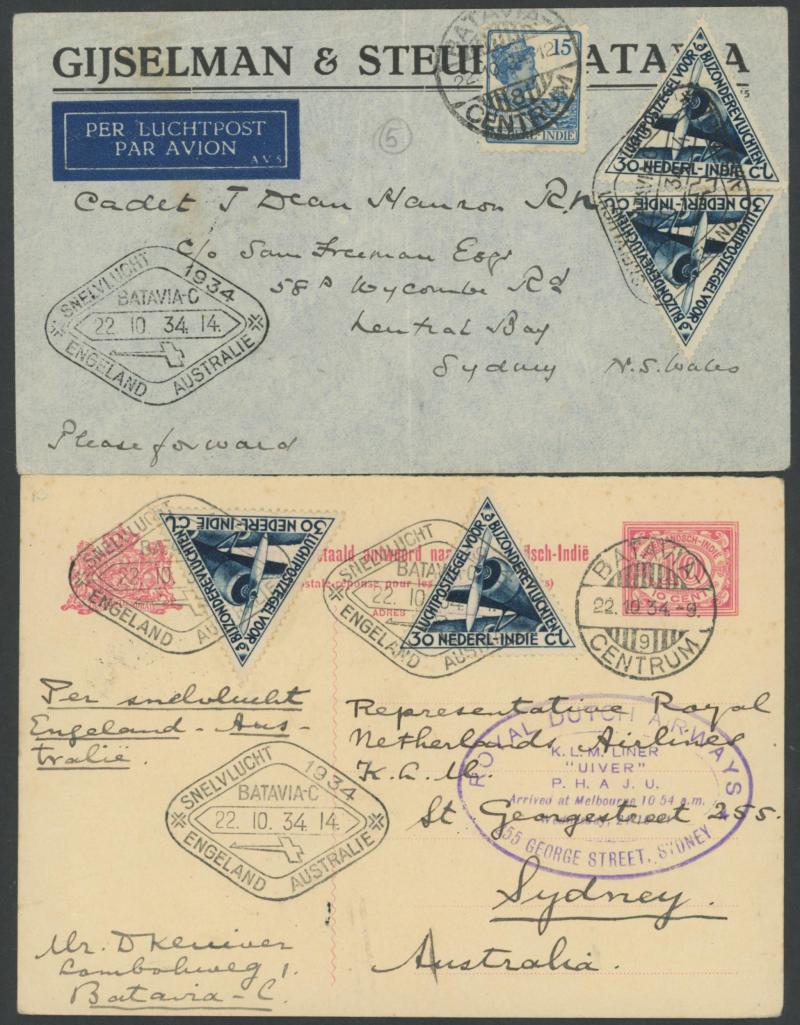 GIJSELMAN & STEUP BATAVIA
BATAVIA
CENTRUM
15
NEDERL-INDIE
PER LUCHTPOST
PAR AVION
AVS
5
LUCHTPOSTZEGEL VOOR
BIJZONDERE VLUCHTEN
30 NEDERL-INDIE CT
30 NEDERL-INDIE CT
LUCHTPOSTZEGEL VOOR
BIJZONDERE VLUCHTEN
Cadet J Dean Hanron R.N
c/o Sam Freeman Esqr
58A Wycombe Rd
Neutral Bay
Sydney N.S. Wales
SNELVLUCHT 1934
BATAVIA-C
22 10 34. 14.
ENGELAND AUSTRALIE
Please forward
30 NEDERL-INDIE CT
LUCHTPOSTZEGEL VOOR
BIJZONDERE VLUCHTEN
SNELVLUCHT
22. 10
ENGELAND
SNELVLUCHT
BATAVIA-C
22. 10. 34.
ENGELAND
LUCHTPOSTZEGEL VOOR
BIJZONDERE VLUCHTEN
30 NEDERL-INDIE CT
ADRES
10 CENT
BATAVIA
22.10.34.-9.
9
CENTRUM
Per snelvlucht
Engeland - Aus-
tralië.
Representative Royal
Netherlands Airlines
K.L.M.
St Georgestreet 255.
Sydney.
Australia.
ROYAL DUTCH AIRWAYS
K.L.M. LINER
"UIVER"
P.H.A.J.U.
Arrived at Melbourne 10 54 a.m.
255 GEORGE STREET, SYDNEY
SNELVLUCHT 1934
BATAVIA-C
22. 10. 34. 14.
ENGELAND AUSTRALIE
Mr. D
Lombokweg 1.
Batavia-C.